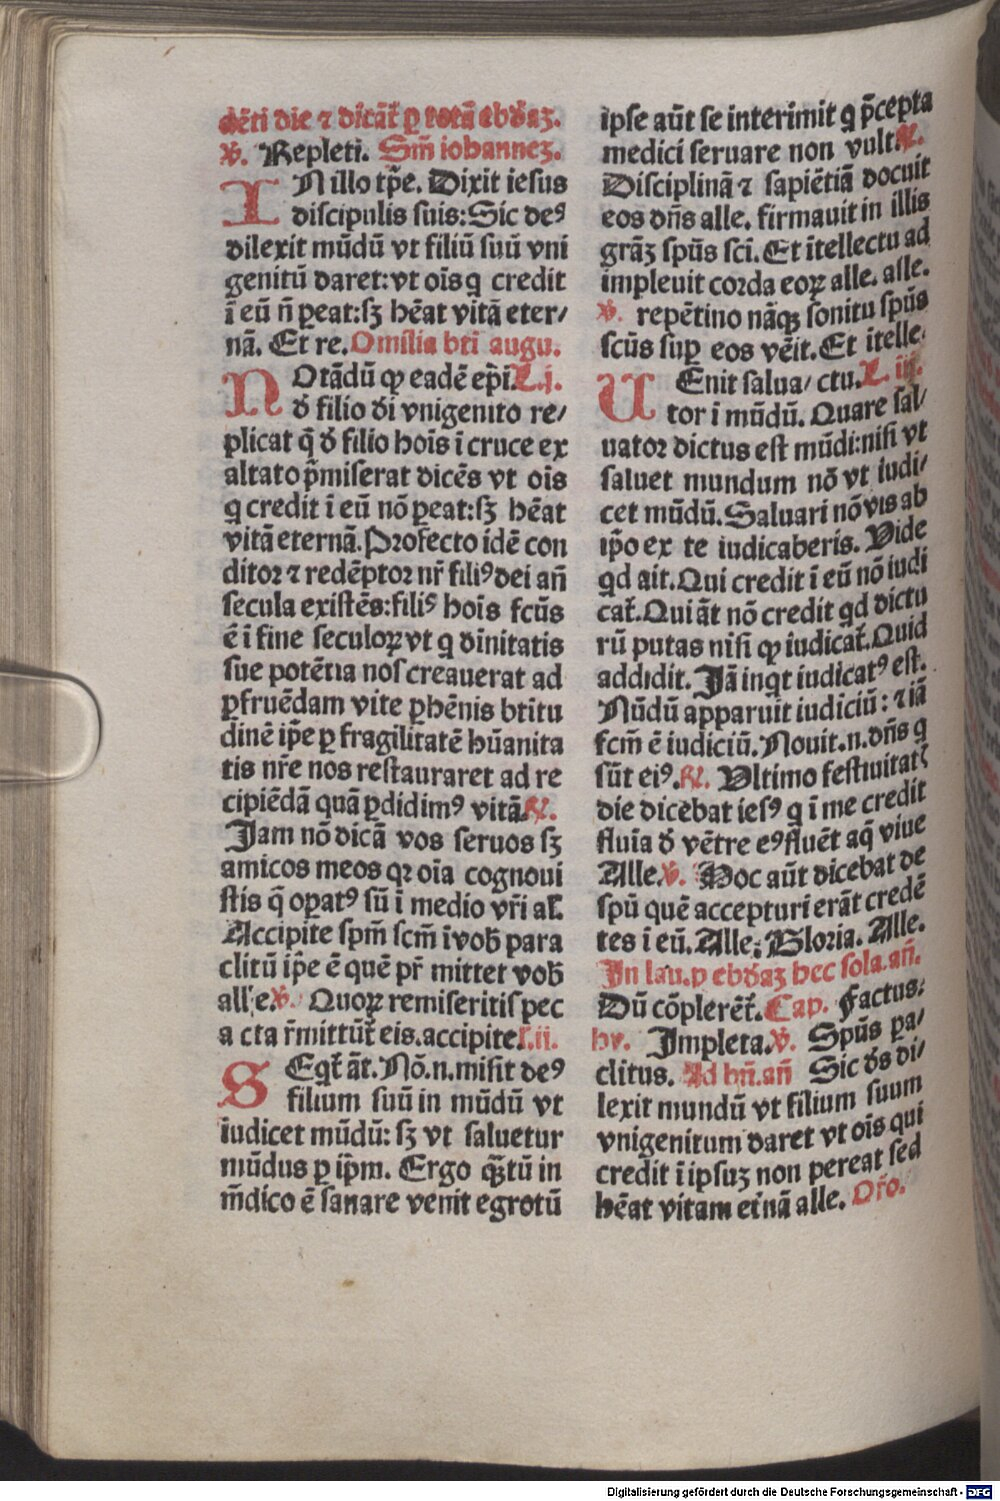 dēti die ⁊ dicāt᷑ ꝑ totā ebdꝫ.
℣. Repleti. Sm̄ iohanneꝫ.
IN illo tp̄e. Dixit iesus
discipulis suis: Sic deꝰ
dilexit mūdū vt filiū suū vni
genitū daret: vt oīs q credit
ī eū n̄ ꝑeat: sꝫ hēat vitā eter/
nā. Et re. Omilia bti augu.
NOtādū ꝙ eadē ep̄i. L. j.
đ filio đi vnigenito re/
plicat q̄ đ filio hoīs ī cruce ex
altato p̄miserat dicēs vt oīs
q credit ī eū nō ꝑeat: sꝫ hēat
vitā eternā. Profecto idē con
ditoꝛ ⁊ redēptoꝛ nr̄ filiꝰ dei an̄
secula existēs: filiꝰ hoīs fcūs
ē ī fine seculoꝝ vt q diuītatis
sue potētia nos creauerat ad
ꝑfruēdam vite ꝑhēnis btitu
dinē ip̄e ꝑ fragilitatē hūanita
tis nr̄e nos restauraret ad re
cipiēdā quā ꝑdidimꝰ vitā. ℟.
Jam nō dicā vos seruos sꝫ
amicos meos qꝛ oīa cognoui
stis q̄ oꝑatꝰ sū ī medio vr̄i al̄.
Accipite sp̄m scm̄ ī vob̄ para
clitū ip̄e ē quē pr̄ mittet vob̄
alle. ℣. Quoꝝ remiseritis pec
a cta r̄mittūt᷑ eis. accipite. L. ii.
SEqt᷑ āt. Nō. n. misit deꝰ
filium suū in mūdū vt
iudicet mūdū: sꝫ vt saluetur
mūdus ꝑ ip̄m. Ergo qꝫtū in
m̄dico ē sanare venit egrotū
ipse aūt se interimit q p̄cepta
medici seruare non vult. ℟.
Disciplinā ⁊ sapiētiā docuit
eos dn̄s alle. firmauit in illis
grāꝫ spūs sci. Et ītellectu ad
impleuit corda eoꝝ alle. alle.
℣. repētino nāqꝫ sonitu spūs
scūs suꝑ eos vēit. Et itelle.
UEnit salua/ ctu. L. iii.
tor ī mūdū. Quare sal/
uator dictus est mūdi: nisi vt
saluet mundum nō vt iudi/
cet mūdū. Saluari nō vis ab
ip̄o ex te iudicaberis. Vide
qd ait. Qui credit ī eū nō iudi
cat᷑. Qui āt nō credit qd dictu
rū putas nisi ꝙ iudicat᷑. Quid
addidit. Jā inqt iudicatꝰ est.
Nūdū apparuit iudiciū: ⁊ iā
fcm̄ ē iudiciū. Nouit. n. dn̄s q
sūt eiꝰ. ℟. Vltimo festiuitatꝭ
die dicebat iesꝰ q ī me credit
fluīa đ vētre eꝰ fluēt aq̄ viue
Alle. ℣. Hoc aūt dicebat de
spū quē accepturi erāt credē
tes ī eū. Alle. Gloria. Alle.
In lau. ꝑ ebdꝫ hec sola. an̄.
Dū cōplerēt᷑. Cap. Factus.
hy. Impleta. ℣. Spūs pa/
clitus. Ad bn̄. an̄ Sic dꝰs di/
lexit mundū vt filium suum
vnigenitum daret vt oīs qui
credit ī ipsuꝫ non pereat sed
hēat vitam et̄nā alle. Oro.
Digitalisierung gefördert durch die Deutsche Forschungsgemeinschaft - DFG